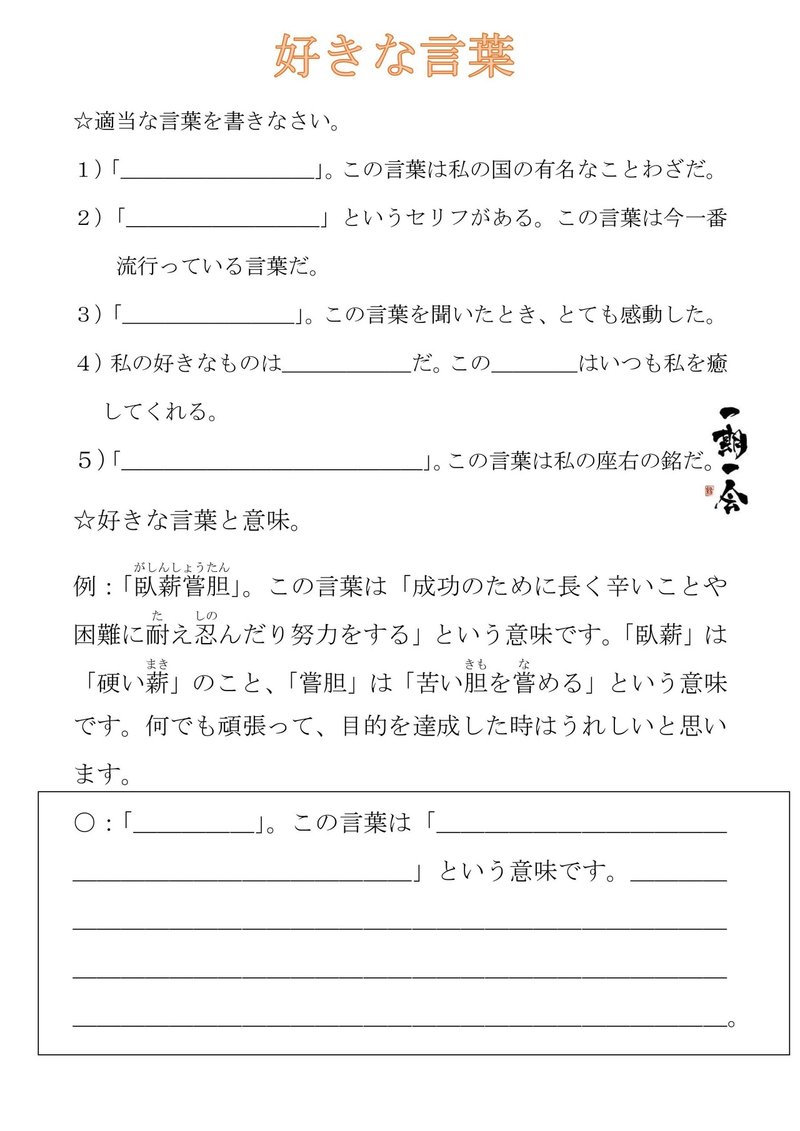 好きな言葉
☆適当な言葉を書きなさい。
１）「__________________」。この言葉は私の国の有名なことわざだ。
２）「__________________」というセリフがある。この言葉は今一番
流行っている言葉だ。
３）「________________」。この言葉を聞いたとき、とても感動した。
４）私の好きなものは____________だ。この________はいつも私を癒
してくれる。
５）「____________________________」。この言葉は私の座右の銘だ。
一期一会
☆好きな言葉と意味。
がしんしょうたん
例：「臥薪嘗胆」。この言葉は「成功のために長く辛いことや
た しの
困難に耐え忍んだり努力をする」という意味です。「臥薪」は
まき きも な
「硬い薪」のこと、「嘗胆」は「苦い胆を嘗める」という意味
です。何でも頑張って、目的を達成した時はうれしいと思い
ます。
〇：「__________」。この言葉は「________________________
____________________________」という意味です。________
______________________________________________________
______________________________________________________
______________________________________________________。